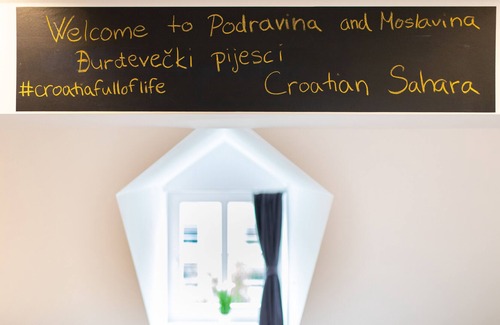 Welcome to Podravina and Moslavina
Đurđevečki pijesci
#croatiafulloflife Croatian Sahara